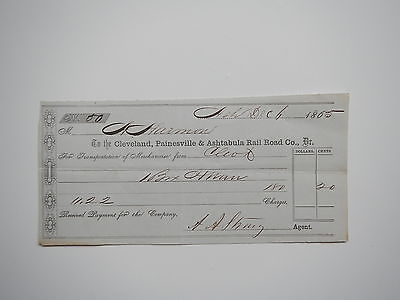 80
Dec 6 1865
M Harmon
To the Cleveland, Painesville & Ashtabula Rail Road Co., Dr.
For Transportation of Merchandise from Cleve
DOLLARS. CENTS.
1 Box
180 20
1122 Charges,
Received Payment for the Company,
A A Strong Agent.